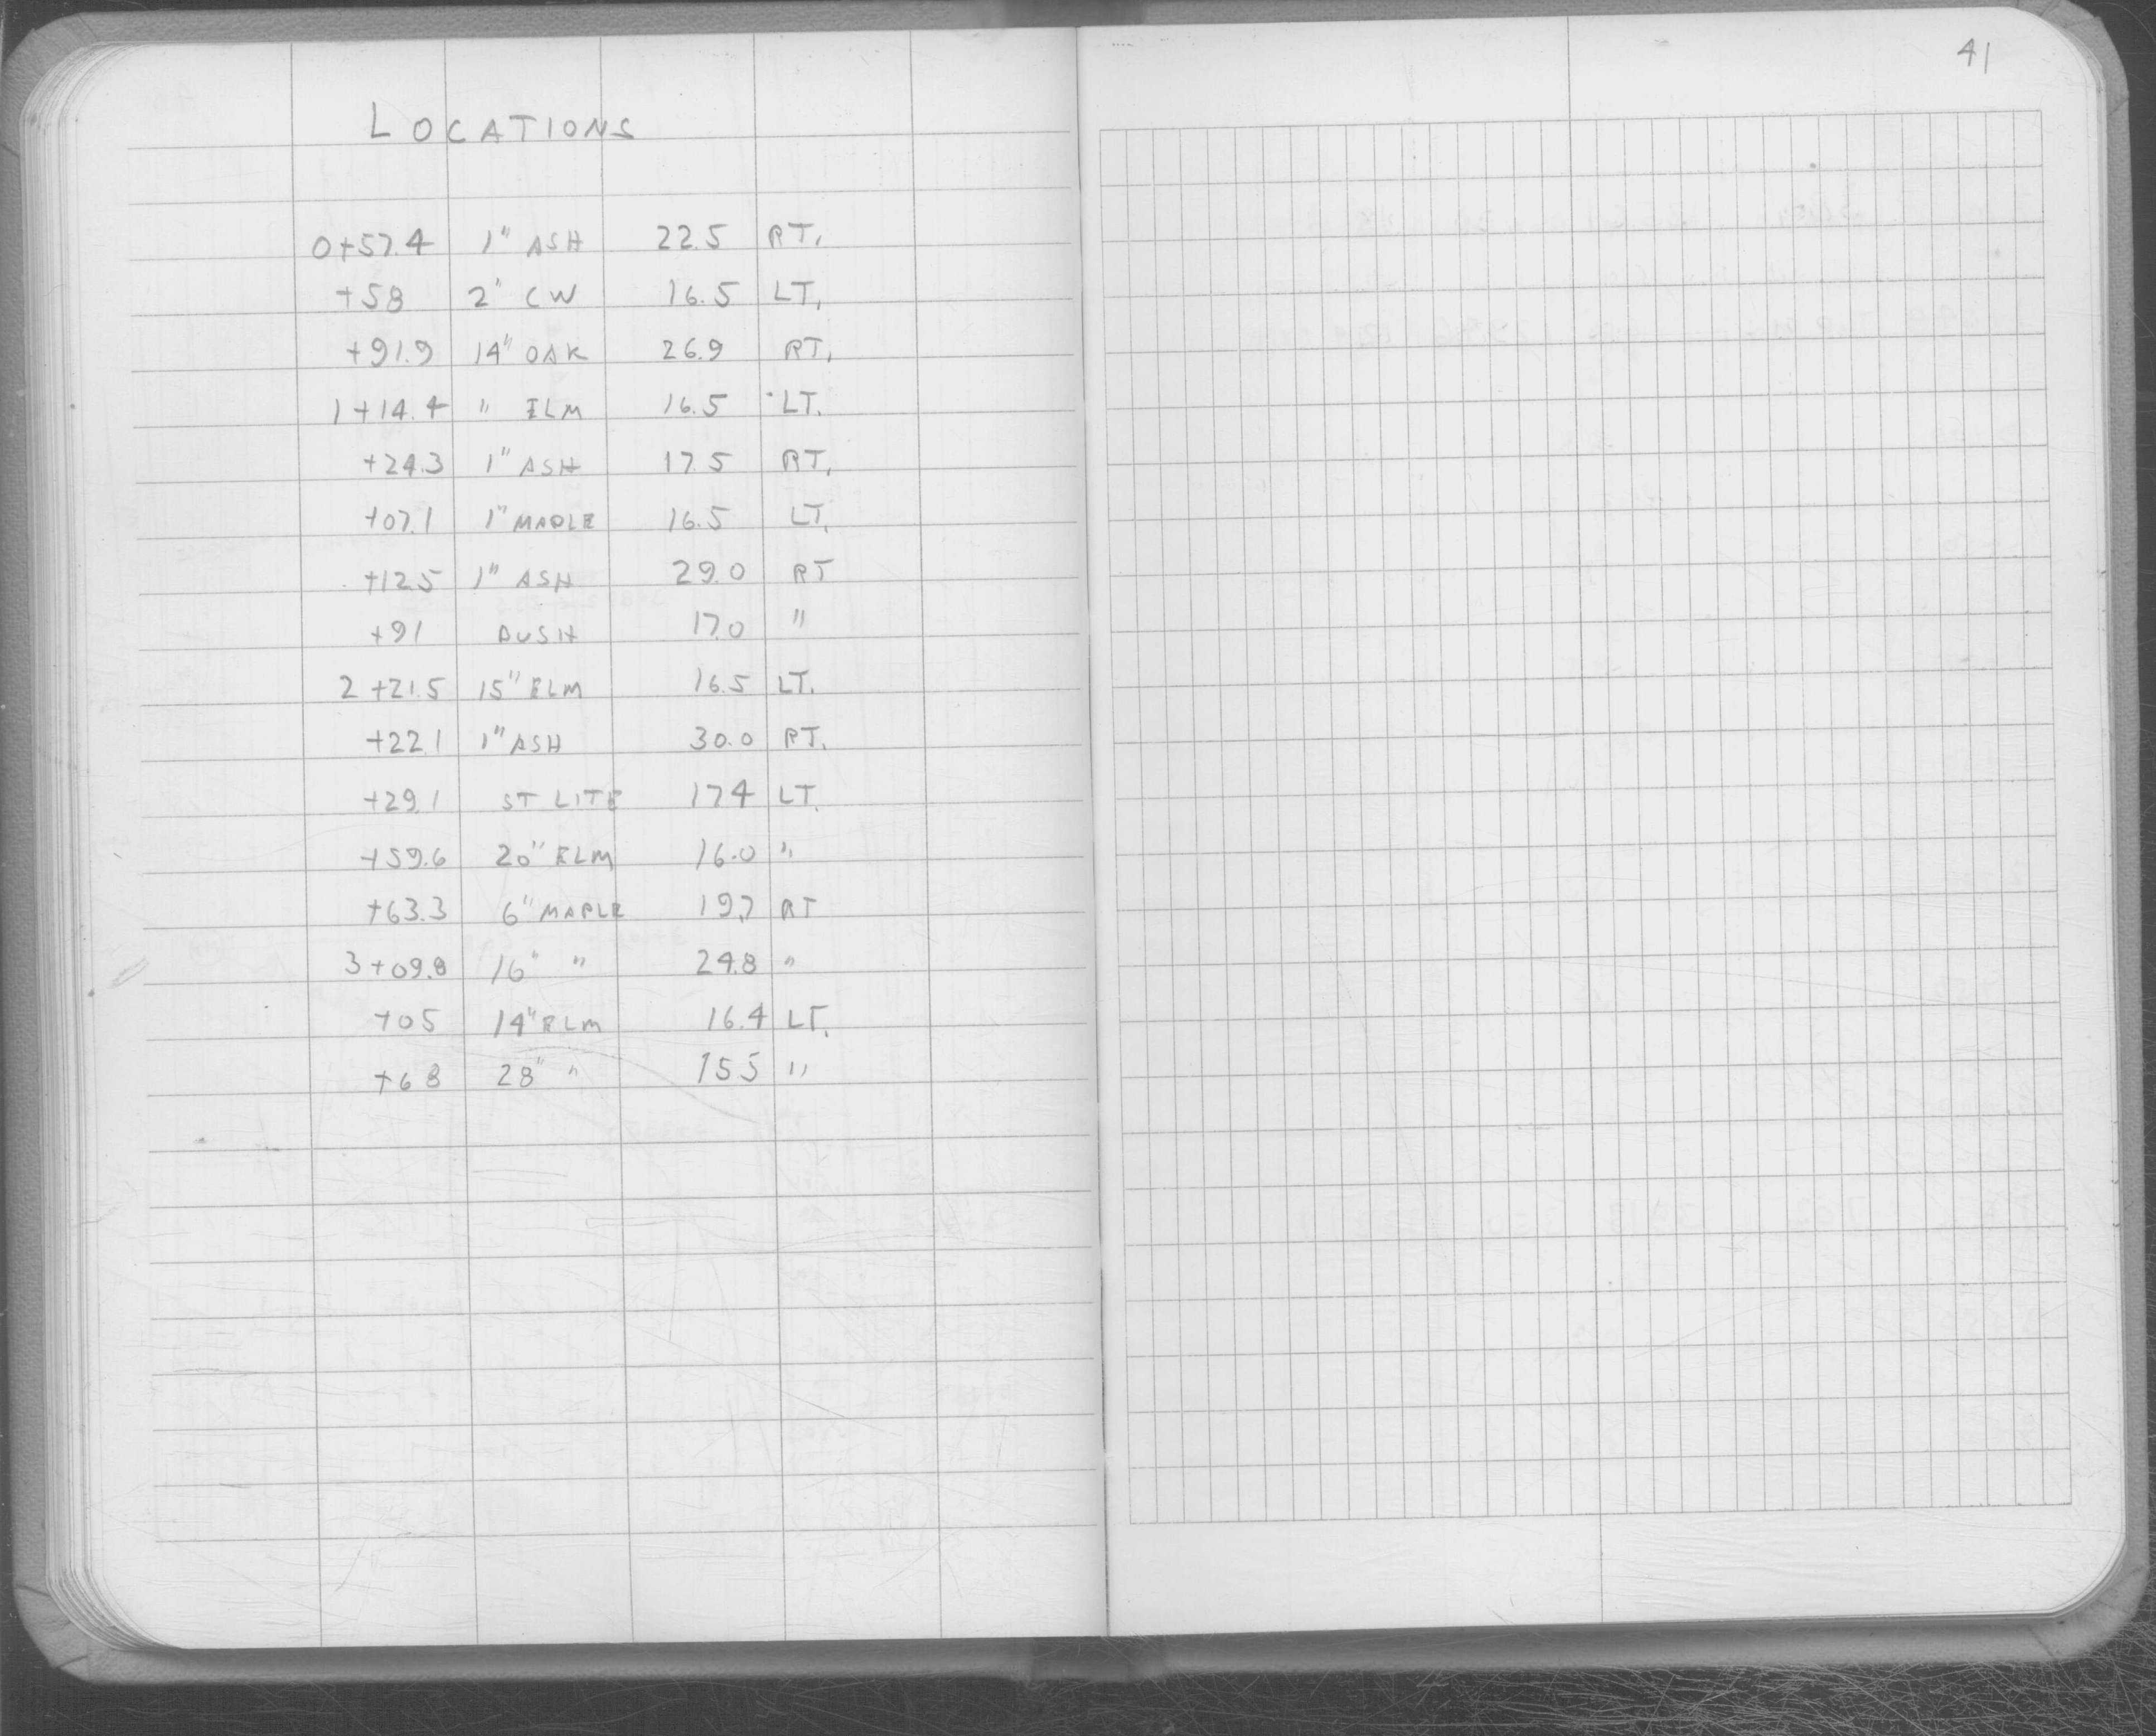 41
LOCATIONS
0+57.4 1" ASH 22.5 RT.
+58 2" CW 16.5 LT.
+91.9 14" OAK 26.9 RT.
1+14.4 " ELM 16.5 LT.
+24.3 1" ASH 17.5 RT.
+07.1 1" MAPLE 16.5 LT.
+12.5 1" ASH 29.0 RT
+91 BUSH 17.0 "
2+21.5 15" ELM 16.5 LT.
+22.1 1" ASH 30.0 RT.
+29.1 ST LITE 17.4 LT.
+59.6 20" ELM 16.0 "
+63.3 6" MAPLE 19.7 RT
3+09.8 16" " 24.8 "
+05 14" ELM 16.4 LT.
+68 28" " 15.5 "